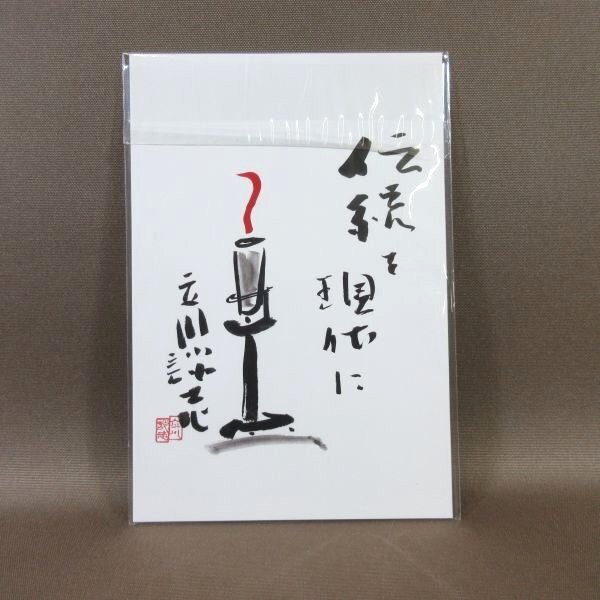 伝統を
現代に
立川談志